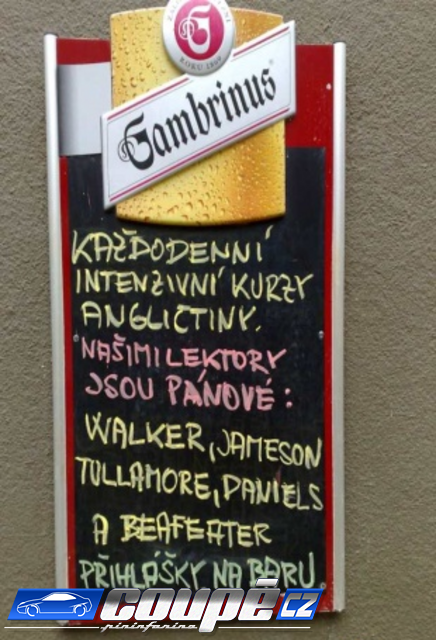 Gambrinus
KAŽDODENNÍ
INTENZIVNÍ KURZY
ANGLIČTINY.
NAŠIMI LEKTORY
JSOU PÁNOVÉ:
WALKER, JAMESON
TULLAMORE, DANIELS
A BEAFEATER
PŘIHLÁŠKY NA BARU
coupé cz
pininfarina